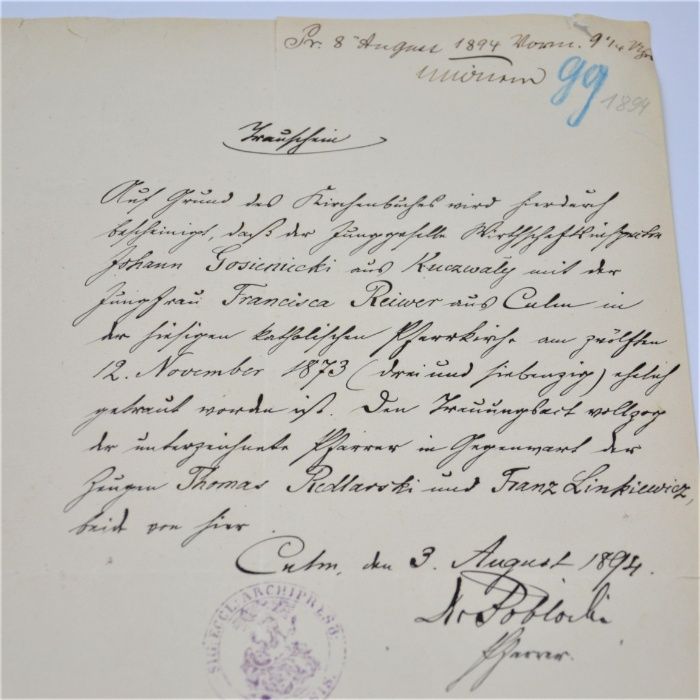 Pr: 8 August 1894 Vorm. 9
99
1894
Trauschein
Auf Grund des Kirchenbuches wird hierdurch
bescheinigt, daß der Junggeselle Wirthschaftsinspector
Johann Gosieniecki aus Kuczwaly mit der
Jungfrau Francisca Reiwer aus Culm in
der hiesigen katholischen Pfarrkirche am zwölften
12. November 1873 (drei und siebenzig) ehelich
getraut worden ist. Den Trauungsact vollzog
der unterzeichnete Pfarrer in Gegenwart der
Zeugen Thomas Redlarski und Franz Linkiewicz,
beide von hier.
Culm, den 3. August 1894.
Dr Poblocki
Pfarrer.
ECCL: ARCHIPRESB